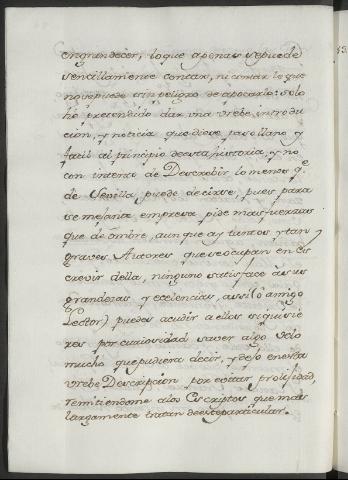 engrandecer, lo que apenas se puede
sencillamente contar, ni contar lo que
no se puede sin peligro de apocarlo: solo
he pretendido dar una vrebe introdu
cion, y noticia que diese passo llano y
facil al principio de esta historia, y no
con intento de Descrebir lo menos q.e
de Sevilla puede decirse, pues para
semejante empresa pide mas fuerzas
que de ombre, aunque ay tantos y tan
graves Autores que se ocupan en Es
crevir della, ninguno satisface à sus
grandezas y excelencias, assi (ô amigo
Lector) puedes acudir a ellos si quisie
res por curiosidad saver algo delo
mucho que pudiera decir, y dejo en esta
vrebe Descripcion por evitar prolijidad,
remitiendome alos Escriptos que mas
largamente tratan de este particular.